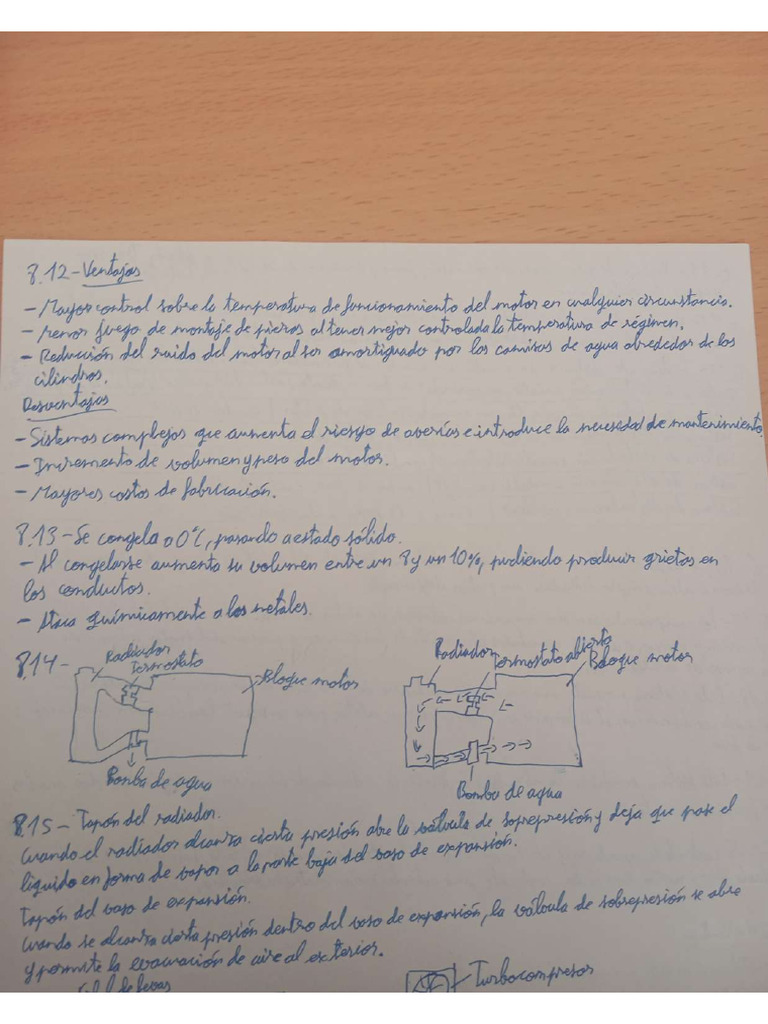 8.12-Ventajas
- Mayor control sobre la temperatura de funcionamiento del motor en cualquier circunstancia.
- Menor juego de montaje de piezas al tener mejor controlada la temperatura de régimen.
- Reducción del ruido del motor al ser amortiguado por las camisas de agua alrededor de los
cilindros.
Desventajas
- Sistemas complejos que aumenta el riesgo de averías e introduce la necesidad de mantenimiento.
- Incremento de volumen y peso del motor.
- Mayores costos de fabricación.
8.13-Se congela a 0°C, pasando a estado sólido.
- Al congelarse aumenta su volumen entre un 8 y un 10%, pudiendo producir grietas en
los conductos.
- Ataca químicamente a los metales.
8.14-
Radiador
Termostato
Bloque motor
Bomba de agua
Radiador
Termostato abierto
Bloque motor
Bomba de agua
8.15- Tapón del radiador.
Cuando el radiador alcanza cierta presión abre la válvula de sopresión y deja que pase el
líquido en forma de vapor a la parte baja del vaso de expansión.
Tapón del vaso de expansión.
Cuando se alcanza cierta presión dentro del vaso de expansión, la válvula de sobrepresión se abre
y permite la evacuación de aire al exterior.
Turbocompresor